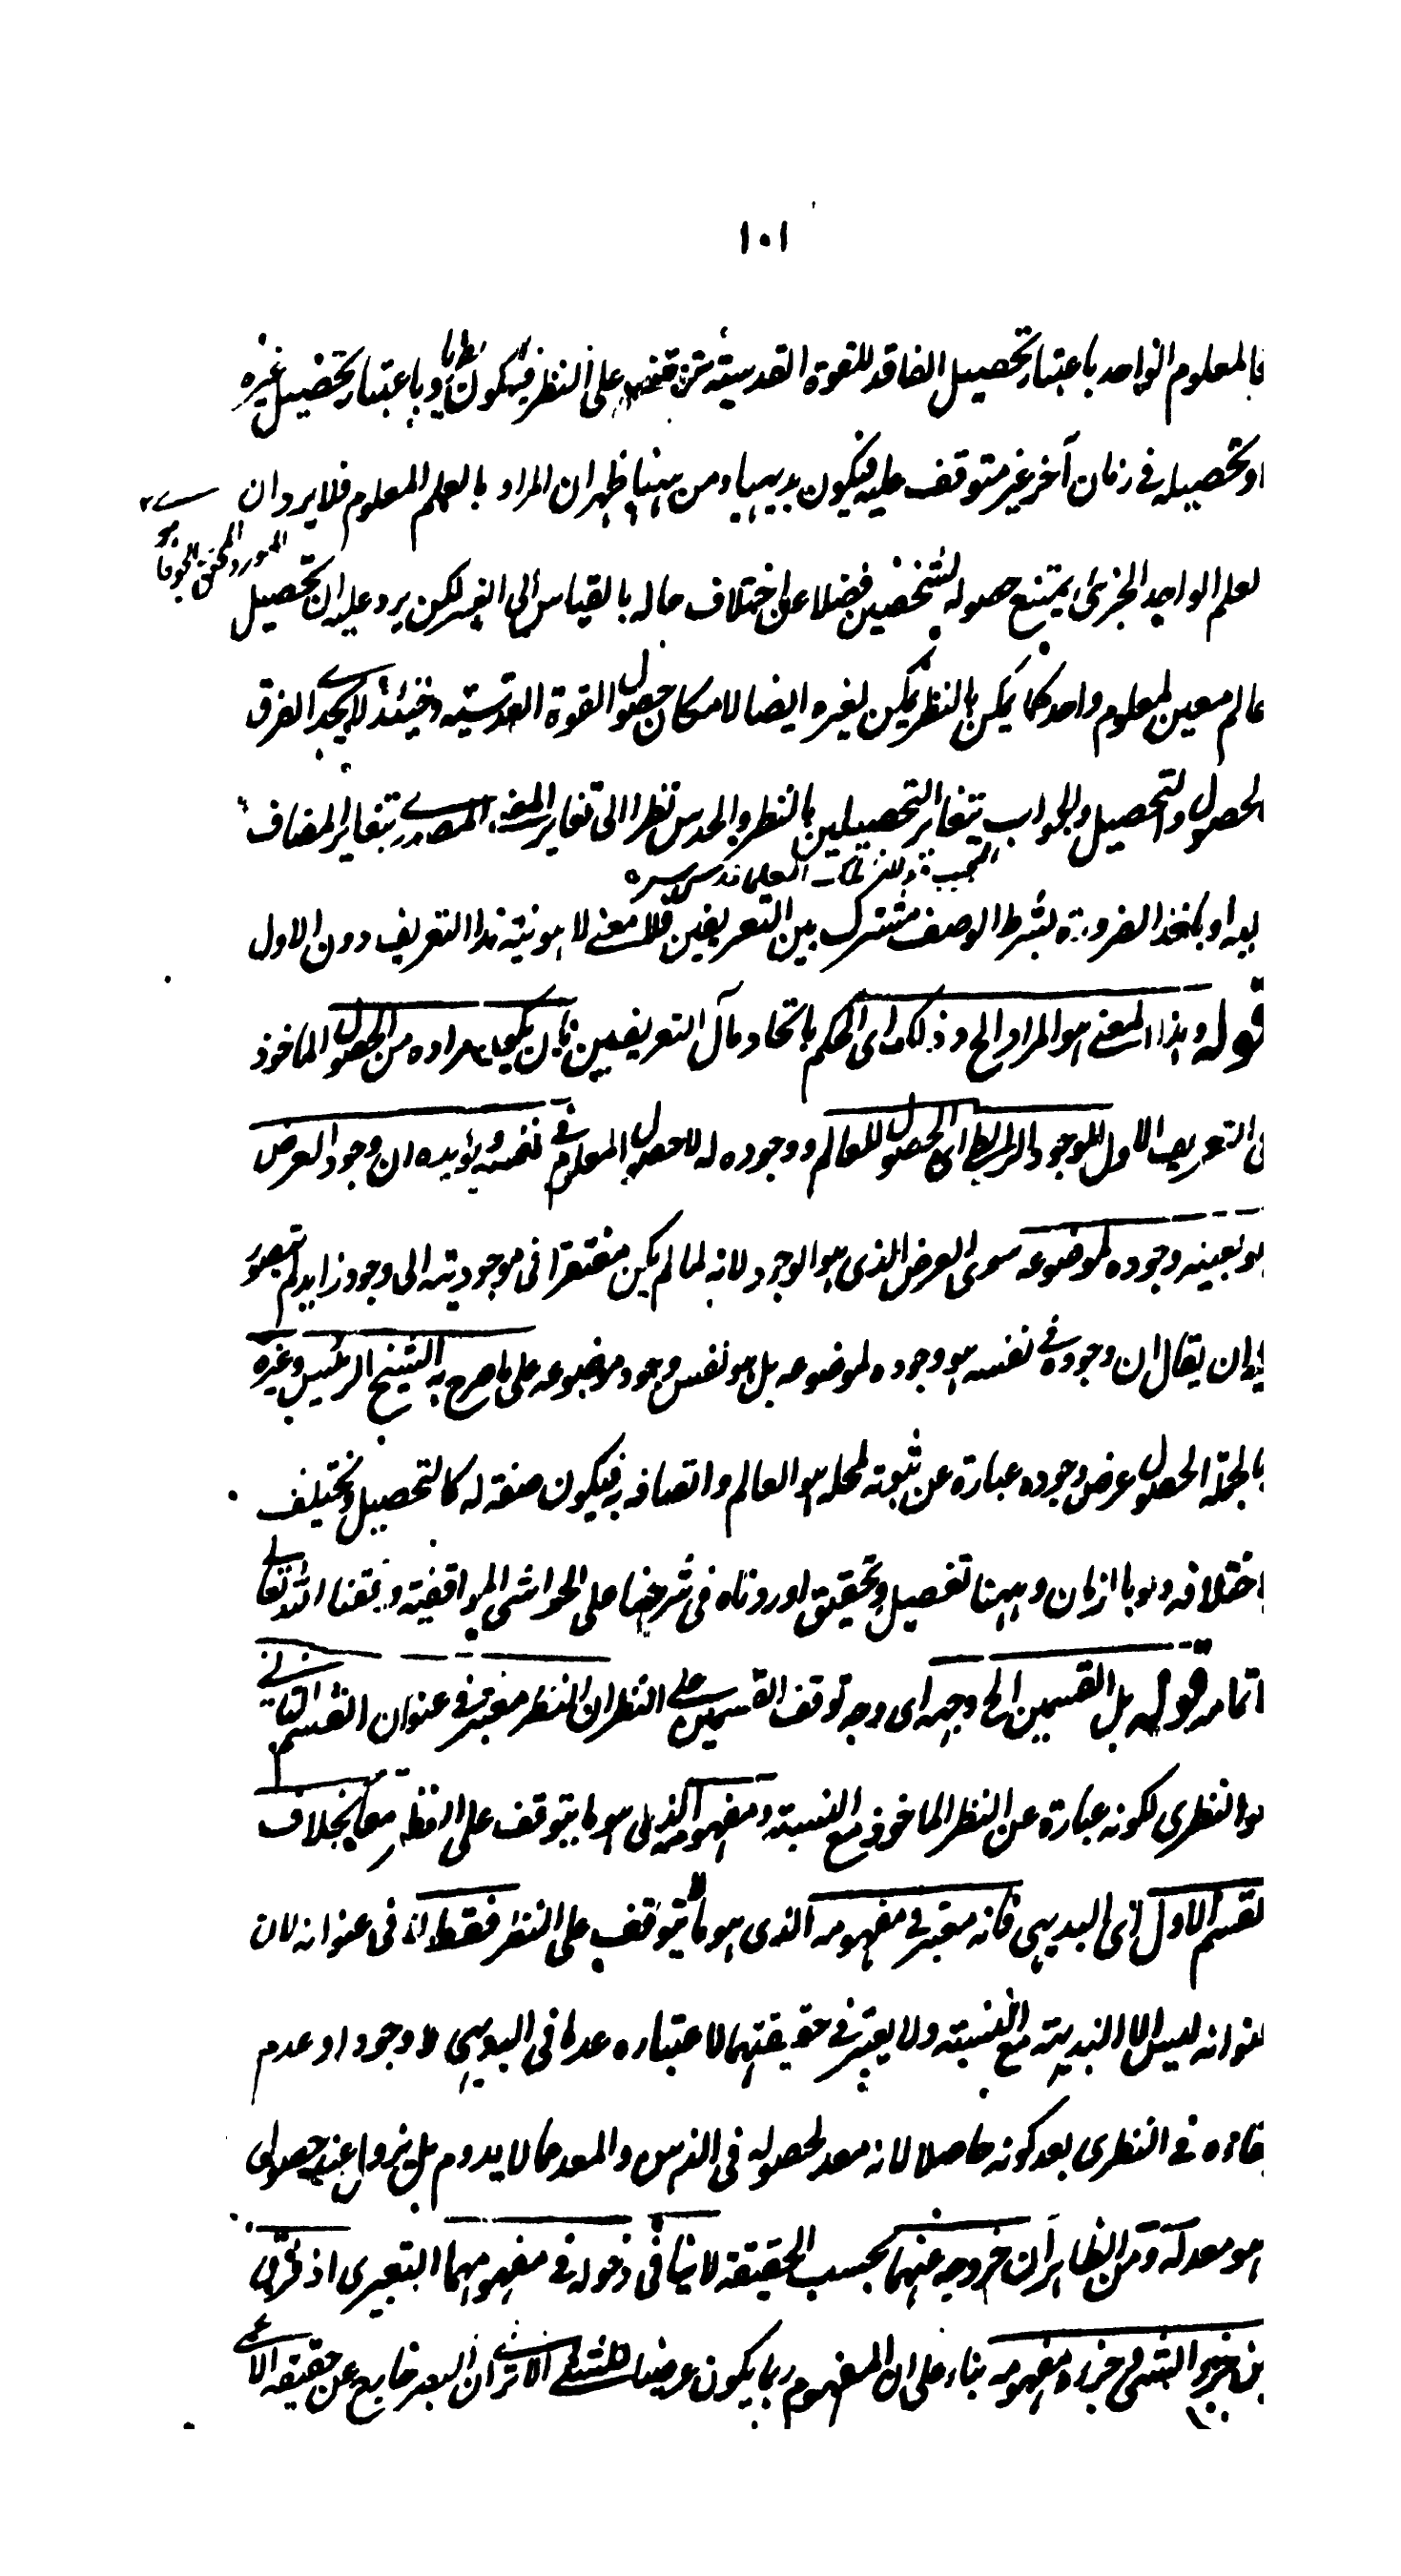 ١٠١
فالمعلوم الواحد باعتبار تحصيل الفاقد للقوة القدسية متوقف على النظر فيكون نظريا وباعتبار تحصيل غيره
او تحصيله في زمان آخر غير متوقف عليه فيكون بديهيا ومن ههنا ظهر ان المراد بالعلم المعلوم فلا يرد ان
المورد المحقق
لعلم الواحد الجزئي يمتنع حصوله لشخصين فضلا عن اختلاف حاله بالقياس الى الغير لكن يرد عليه ان تحصيل
عالم معين لمعلوم واحد كما يمكن بالنظر يمكن لغيره ايضا لامكان حصول القوة القدسية وحينئذ لا يجد الفرق
لحصول والتحصيل والجواب بتغاير التحصيلين بالنظر والحدس نظرا الى تغاير المعنى المصدرى بتغاير المضاف
المجيب قدس سره
اليه او باخذ الضرورة بشرط الوصف مشترك بين التعريفين فلا معنى لاهونية هذا التعريف دون الاول
قوله وهذا المعنى هو المراد الخ وذلك اى الحكم باتحاد مآل التعريفين بان يكون مراده من الحصول الماخوذ
فى التعريف الاول الموجود الرابطى اى الحصول للعالم ووجوده له لا حصول المعلوم فى نفسه ويؤيده ان وجود العرض
هو بعينه وجوده لموضوعه سوى العرض الذى هو الوجود لانه لما لم يكن مفتقرا فى موجوديته الى وجود زايد لم يتصور
فيه ان يقال ان وجوده فى نفسه هو وجوده لموضوعه بل هو نفس وجود موضوعه على ما صرح به الشيخ الرئيس وغيره
بالجملة الحصول عرض وجوده عبارة عن ثبوته لمحله هو العالم واتصافه به فيكون صفة له كالتحصيل ويختلف
باختلافه ولو بالزمان وههنا تفصيل وتحقيق اوردناه فى شرحنا على الحواشى المواقفية وفقنا الله تعالى
اتمامه قوله بل القسمين الخ وجهه اى وجه توقف القسمين على النظر ان النظر معتبر فى عنوان القسم الثانى
هو النظرى لكونه عبارة عن النظر الماخوذ مع النسبة ومفهومه الذى هو ما يتوقف على النظر معا بخلاف
القسم الاول اى البديهى فانه معتبر فى مفهومه الذى هو ما لا يتوقف على النظر فقط لا فى عنوانه لان
عنوانه ليس الا البديهة مع النسبة ولا يعتبر فى حقيقتهما لاعتباره عدما فى البديهى لا وجودا وعدم
بقاءه فى النظرى بعد كونه حاصلا لانه معد لحصوله فى الذهن والمعد مما لا يدوم بل يزول عند حصول
ما هو معد له ومن الظاهر ان خروجه عنهما بحسب الحقيقة لا ينافى دخوله فى مفهومهما التعبيرى اذ فرق
بين جزء الشئ وجزء مفهومه بناء على ان المفهوم ربما يكون عرضيا للشئ الا ترى ان البصر خارج عن حقيقة الاعمى